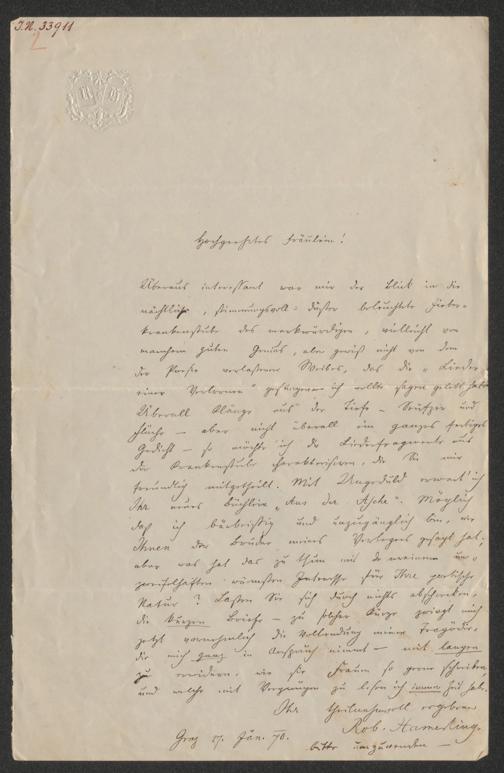 I.N. 33911
2
Hochgeehrtes Fräulein!
Überaus interessant war mir der Blick in die
nächtliche, stimmungsvoll-düster beleuchtete Fieber-
krankenstube des merkwürdigen, vielleicht von
manchem guten Genius, aber gewiß nicht von dem
der Poesie verlassenen Weibes, das die „Lieder
einer Verlorenen" gesungen – ich wollte sagen gelebt hat.
Überall Klänge aus der Tiefe – Seufzer und
Flüche – aber nicht überall ein ganzes fertiges
Gedicht – so möchte ich die Liederfragmente aus
der Krankenstube charakterisiren, die Sie mir
freundlich mitgetheilt. Mit Ungeduld erwart' ich
Ihr neues Büchlein „Aus der Asche". Möglich
daß ich bärbeißig und unzugänglich bin, wie
Ihnen der Bruder meines Verlegers gesagt hat,
aber was hat das zu thun mit dem un-
zweifelhaften wärmsten Interesse für Ihre poetische
Natur? Lassen Sie sich durch nichts abschrecken,
die kurzen Briefe – zu solcher Kürze zwingt mich
jetzt vornehmlich die Vollendung meiner Tragödie,
die mich ganz in Anspruch nimmt – mit langen
zu erwidern, wie sie Frauen so gerne schreiben,
und welche mit Vergnügen zu lesen ich immer Zeit habe.
Ihr theilnahmvoll ergebener
Rob. Hamerling.
Graz 27. Jän. 70.
bitte umzuwenden –